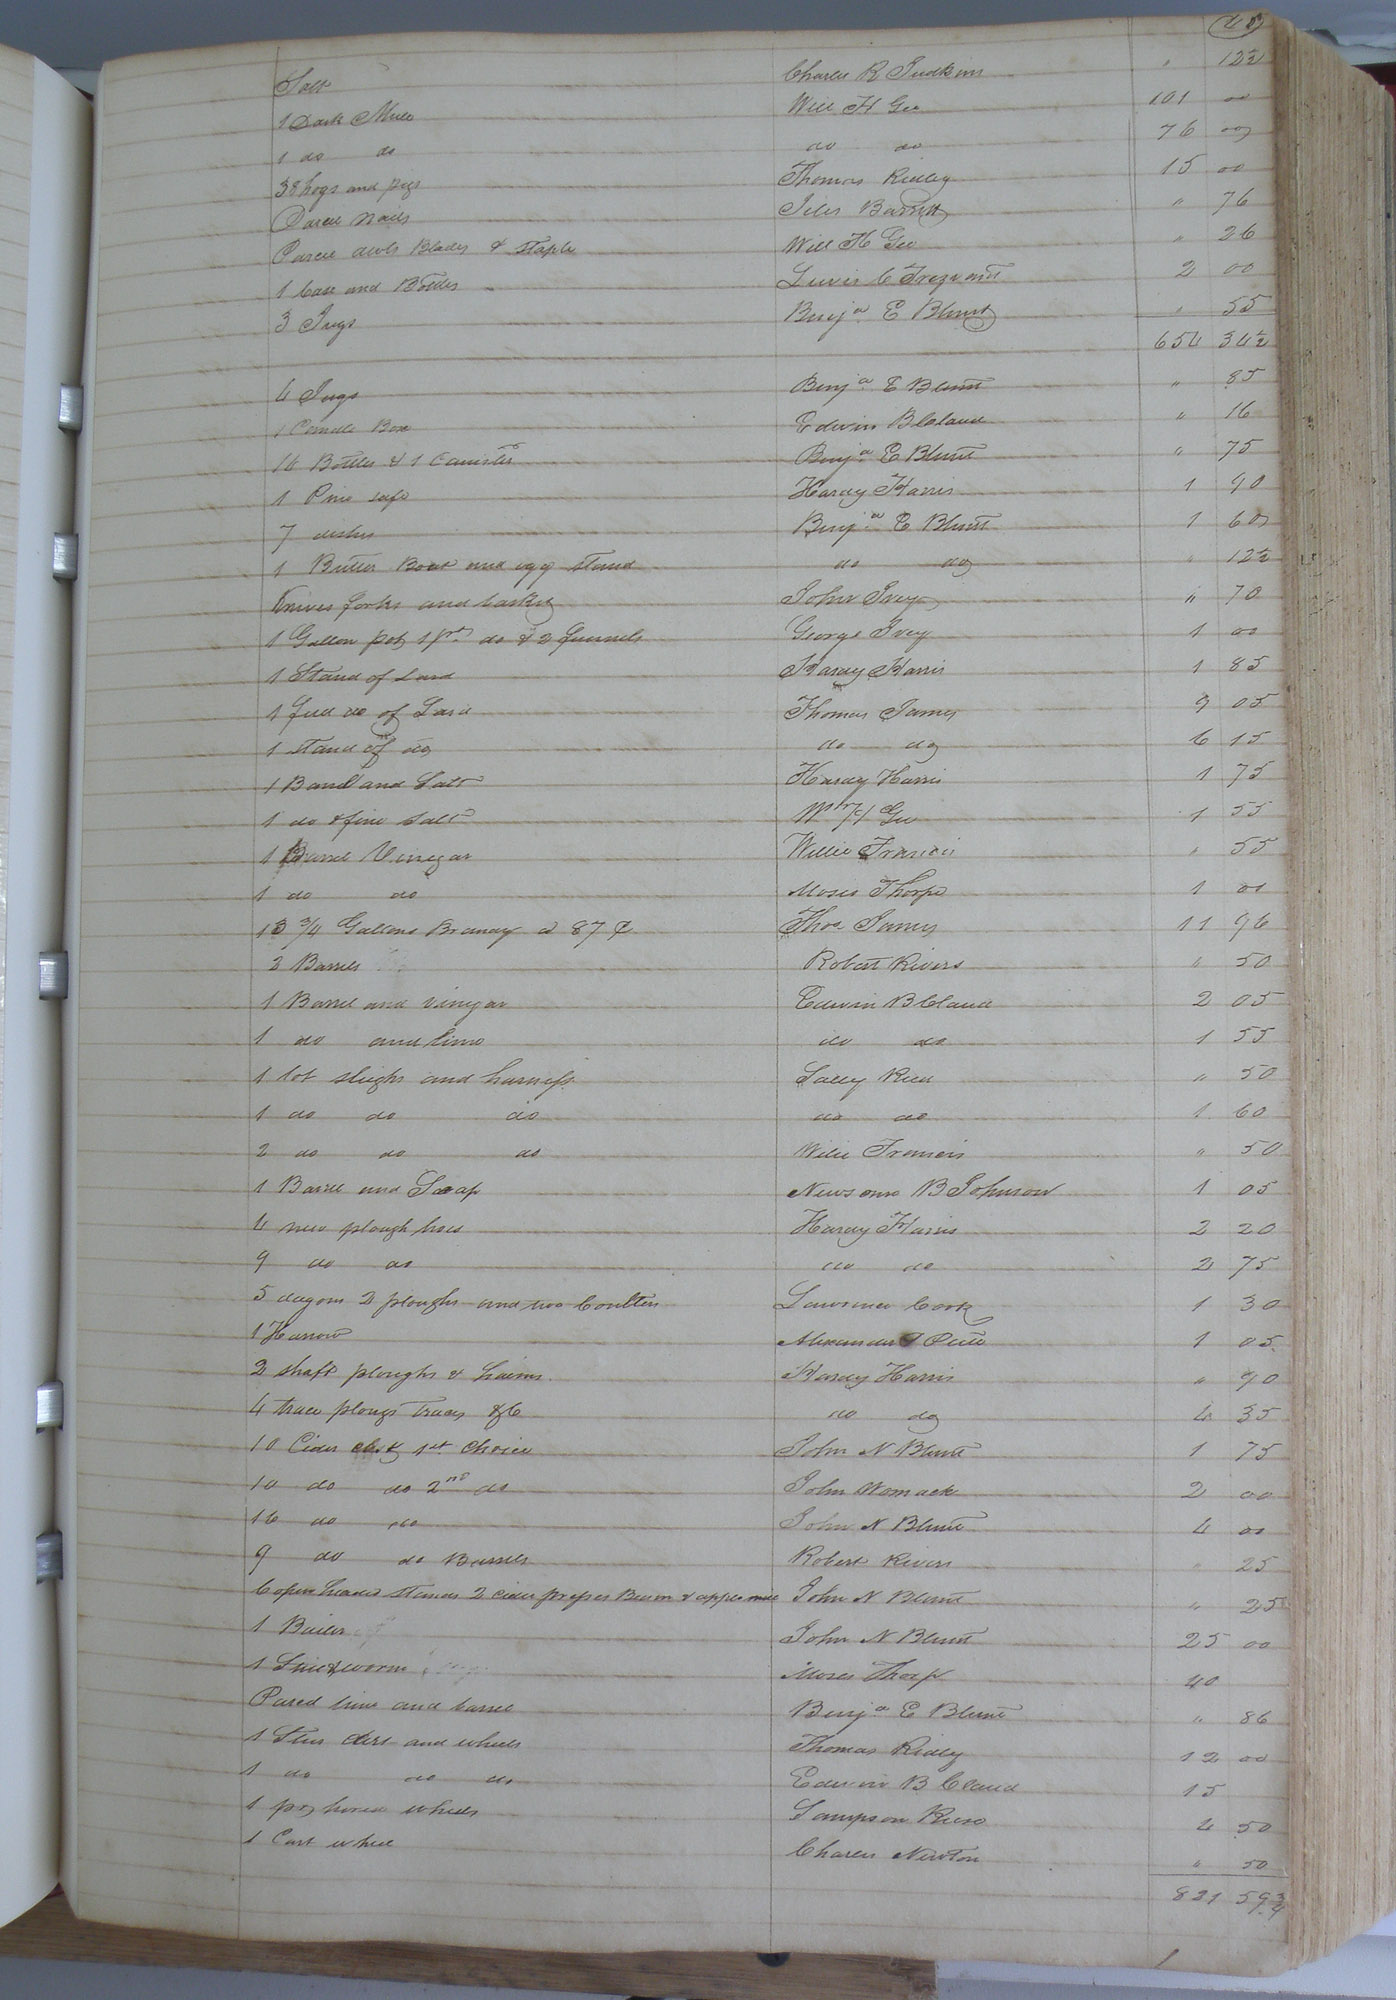 45
Salt Charles R Judkins " 12½
1 Dark Mule Will H Gee 101 00
1 do do do do 76 00
38 hogs and pigs Thomas Ridley 15 00
Parcel Nails Jiles Barrett " 76
Parcel awls Blades & Staple Will H Gee " 26
1 Case and Bottles Lewis C Trezvant 2 00
3 Jugs Benja E Blunt " 55
654 34½
4 Jugs Benja E Blunt " 85
1 Candle Box Edwin B Claud " 16
16 Bottles & 1 Canister Benja E Blunt " 75
1 Pine safe Hardy Harris 1 90
7 dishes Benja E Blunt 1 60
1 Butter Boat and egg stand do do " 12½
Knives forks and basket John Ivey " 70
1 Gallon pot 1 pt do & 2 funnels George Ivey 1 00
1 Stand of Lard Hardy Harris 1 85
1 do of Lard Thomas James 9 05
1 stand of do do do 6 15
1 Barrel and Salt Hardy Harris 1 75
1 do & fine Salt Wm H Gee 1 55
1 Barrel Vinegar Willie Francis " 55
1 do do Moses Thorpe 1 00
13 3/4 Gallons Brandy @ 87 ¢ Thos James 11 96
2 Barrels Robert Rivers " 50
1 Barrel and vinegar Edwin B Claud 2 05
1 do and lime do do 1 55
1 lot sleighs and harness Salley " 50
1 do do do do do 1 60
2 do do do Willie Francis " 50
1 Barrel and Soap Newsome B Johnson 1 05
4 new plough hoes Hardy Harris 2 20
9 do do do do 2 75
5 dagons 2 ploughs and two Coulters Lawrence Cook 1 30
1 Harrow Alexander P Peete 1 05
2 shaft ploughs & haims Hardy Harris " 90
4 trace plougs Traces &C do do 4 35
10 Cider 1st Choice John N Blunt 1 75
10 do do 2nd do John Womack 2 00
16 do do John N Blunt 4 00
9 do do Barrels Robert Rivers " 25
6 open headed stands 2 cider presses Beam & apple mill John N Blunt " 25
1 Boiler John N Blunt 25 00
1 Still & worm Moses Thorp 40
Parcel lime and barrel Benja E Blunt " 86
1 and wheels Thomas Ridley 12 00
1 do do do Edwin B Claud 15
1 pr wheels Sampson Reese 4 50
1 Cart wheel Charles Newton " 50
821 59¾